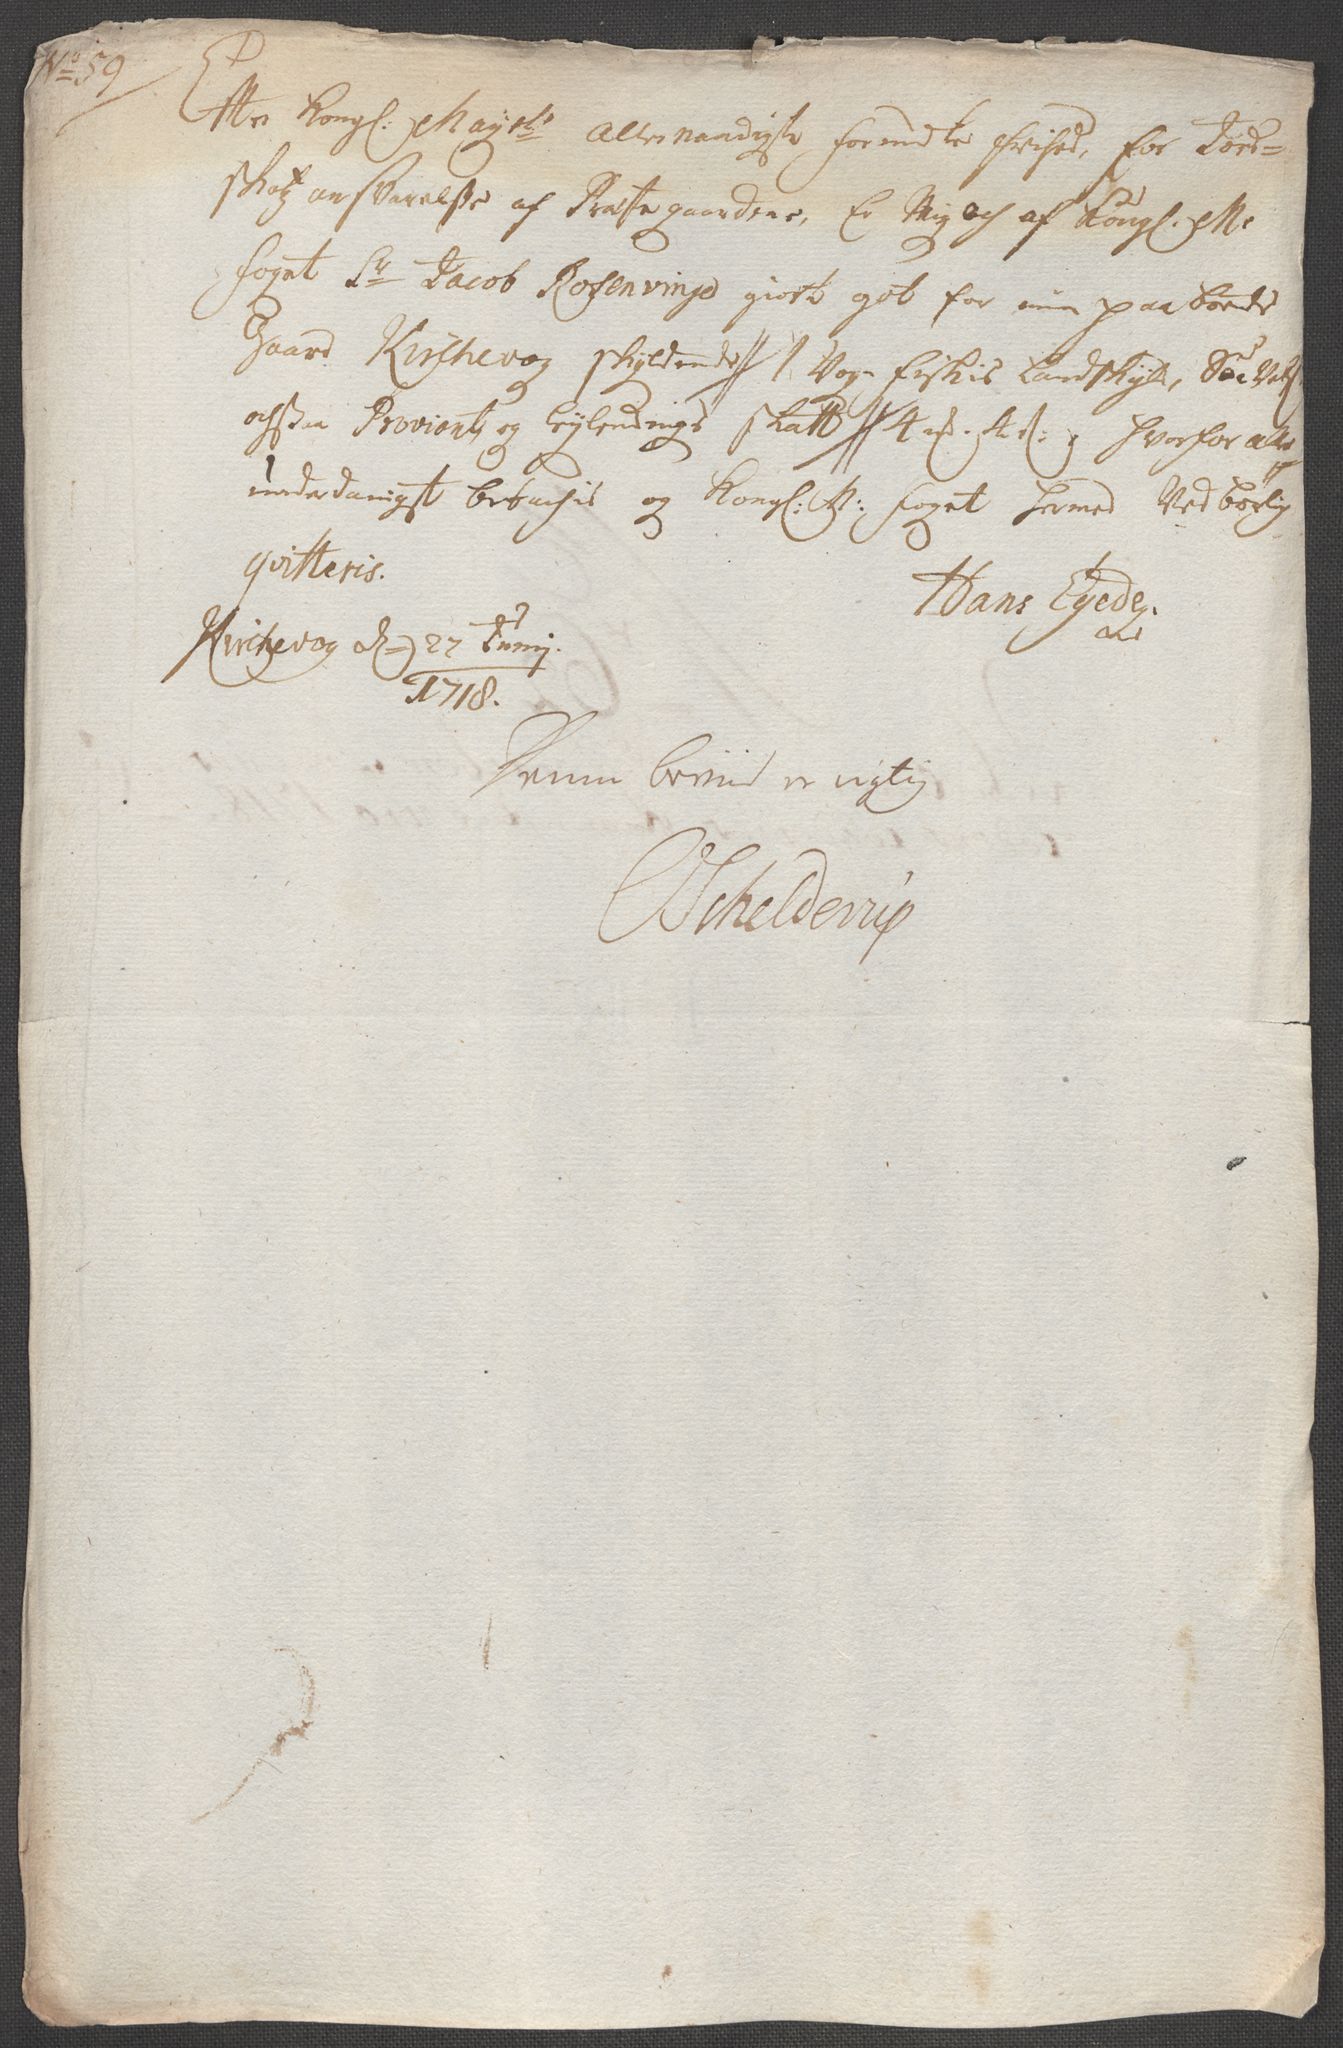 No 59
Efter Kongl: Maÿsts Allernaadigste formeente frihed, for Jord-
skatz ansvarelse af Præstegaardene, Er Mig och af Kongl. Mts
foget Sr Jacob Rosenvinge giort got for min paaboende
Gaard Kirchevog skyldende // 1 Vog fiskis Landskyld, Saa Vel
ochsaa Proviant og Leylendings skatt // 4 rd. ; hvorfor aller
underdanigst betachis og Kongl: M: foget hermed Ved børlig
qvitteris.
Hans Egede
Kirchevog d 27 Junij.
1718.
Denne beviis er rigtig
Schelderup